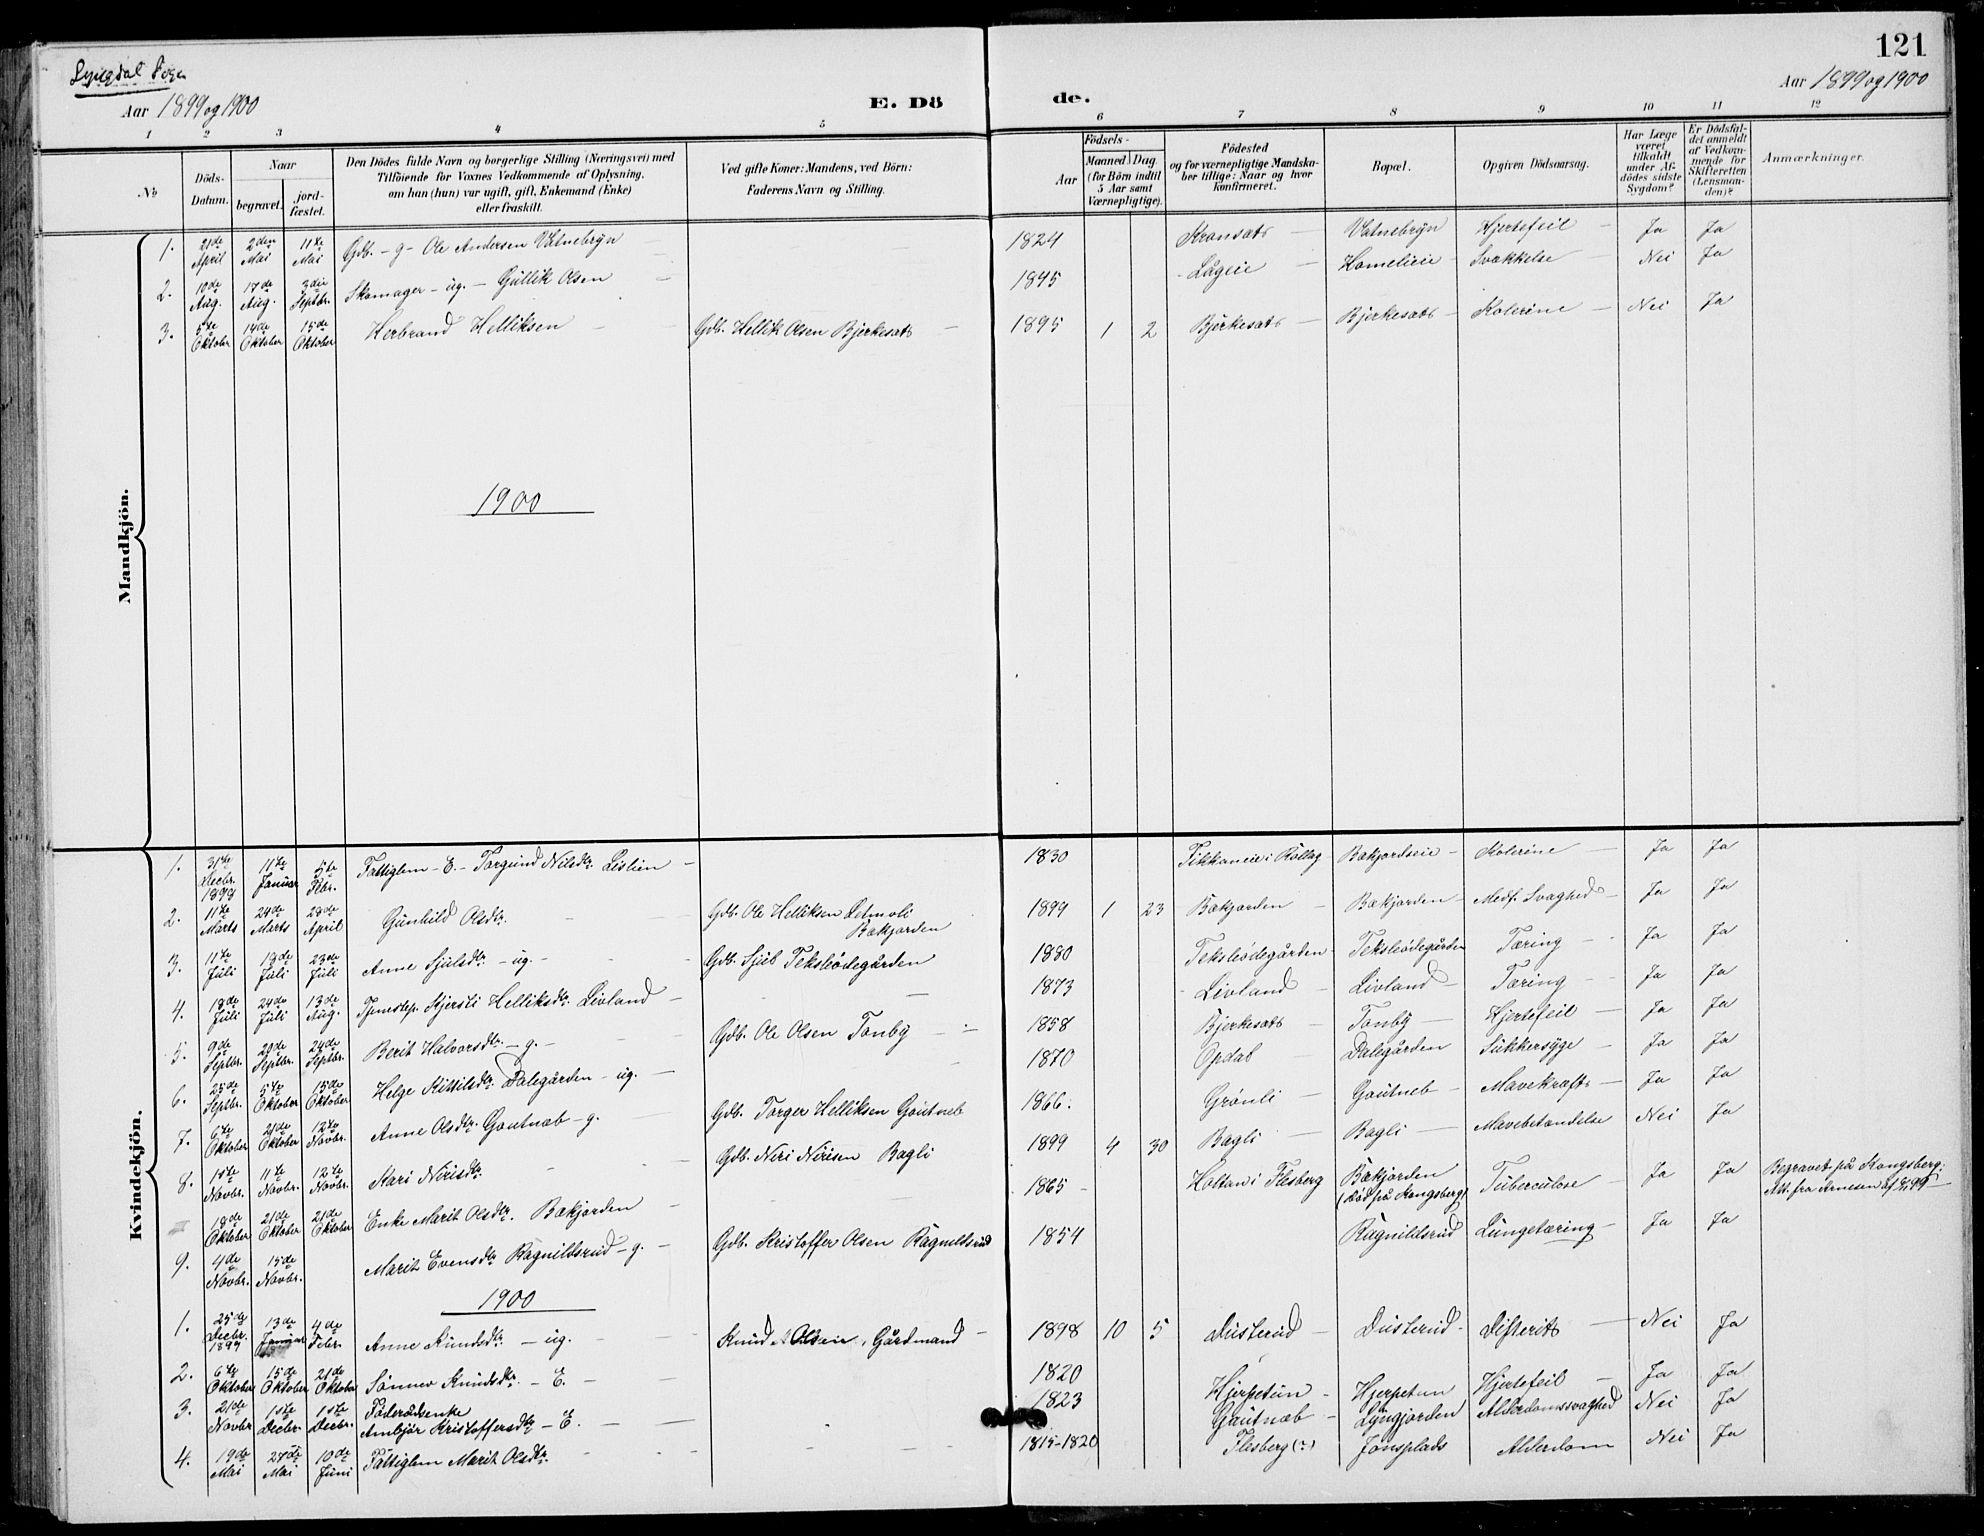 Lyngdal Sogn
Aar 1899 og 1900
E. Dö
de.
121
Aar 1899 og 1900
1 2 3 4 5 6 7 8 9 10 11 12
No
Döds-Datum.
Naar
begravet.
jord-fæstet.
Den Dödes fulde Navn og borgerlige Stilling (Næringsvei) med
Tilföiende for Voxnes Vedkommende af Oplysning.
om han (hun) var ugift, gift, Enkemand (Enke)
eller fraskilt.
Ved gifte Koner: Mandens, ved Börn:
Faderens Navn og Stilling.
Födsels-
Aar
Maaned Dag
(for Börn indtil
5 Aar samt
Værnepligtige).
Födested
og for værnepligtige Mandska-
ber tillige: Naar og hvor
konfirmeret.
Bopæl.
Opgiven Dödsaarsag.
Har Læge
været
tilkaldt
under Af-
dödes sidste
Sygdom?
Er Dödsfal-
det anmeldt
af Vedkom-
mende for
Skifteretten
(Lensman-
den)?
Anmærkninger.
Mandkjön.
1. 21de April 2den Mai 11te Mai Gdb. - g - Ole Andersen Vatnebryn 1824 Kransats Vatnebryn Hjertefeil Ja Ja
2. 10de Aug. 17de Aug. 3die Septbr. Skomager - ug. - Gullik Olsen 1845 Lågeie Homelieie Svækkelse Nei Ja
3. 5te Oktober 14de Oktober 15de Oktober Herbrand Helliksen Gdb. Hellik Olsen Bjerkesats 1895 1 2 Bjerkesats Bjerkesats Kolerine Nei Ja
1900
Kvindekjön.
1. 31te Decbr. 1898 11te Januar 5te Febr. Fattiglem - E. - Torgund Nilsdtr. Lislien 1830 Fikkaneie i Rollag Bækjordseie Kolerine Ja Ja
2. 11te Marts 24de Marts 23de April Gunhild Olsdtr. Gdb. Ole Helliksen Letmoli Bækjorden 1899 1 23 Bækjorden Bækjorden Medf. Svaghed Ja Ja
3. 11te Juli 19de Juli 23de Juli Anne Sjulsdtr. - ug. - Gdb. Sjul Teksleødegården 1880 Teksleødegården Teksleødegården Tæring Ja Ja
4. 18de Juli 24de Juli 13de Aug. Tjenestep. Kjersti Helliksdtr. Livland 1873 Livland Livland Tæring Ja Ja
5. 9de Septbr. 20de Septbr. 24de Septbr. Berit Halvorsdtr. - g. - Gdb. Ole Olsen Tonby 1858 Bjerkesats Tonby Hjertefeil Ja Ja
6. 25de Septbr. 5te Oktober 15de Oktober Helge Kittilsdtr. Dalegården - ug. 1870 Opdal Dalegården Sukkersyge Ja Ja
7. 6te Oktober 21de Oktober 12te Novbr. Anne Olsdtr. Gautneb - g. Gdb. Torger Helliksen Gautneb 1866. Grønli Gautneb Mavekræft Ja Ja
8. 1ste Novbr. 11te Novbr. 12te Novbr. Mari Nirisdtr. Gdb. Neri Nirisen Bagli 1899 4 30 Bagli Bagli Mavebetændelse Nei Ja
18de Oktober 21de Oktober 21de Oktober Enke Marit Olsdtr. Bækjorden 1865 Holtan i Flesberg Bækjorden (Død på Kongsberg) Tuberculose Ja Ja Begravet på Kongsberg: Att. fra Arnesen af
9. 4de Novbr. 15de Novbr. Marit Evensdtr. Ragnildsrud - g. Gdb. Kristoffer Olsen Ragnildsrud 1854 Ragnildsrud Lungetæring Ja Ja
1900
1. 25de Decbr. 1899 13de Januar 4de Febr. Anne Knudsdtr. - ug. Knud Olsen, Gårdmand 1898 10 5 Dusterud Dusterud Difterit Nei Ja
2. 6te Oktober 15de Oktober 21de Oktober Sønnev Knudsdtr. - E. 1820 Hjerpetun Hjerpetun Hjertefeil Ja Ja
3. 21de Novbr. 1ste Decbr. 1ste Decbr. Føderådsenke Ambjør Kristoffersdtr. - E. 1823 Gautneb Lyngjorden Alderdomssvaghed Nei Ja
4. 19de Mai 28de Mai 10de Juni Fattiglem Marit Olsdtr. 1815-1820 Flesberg (?) Jonsplads Alderdom Nei Ja